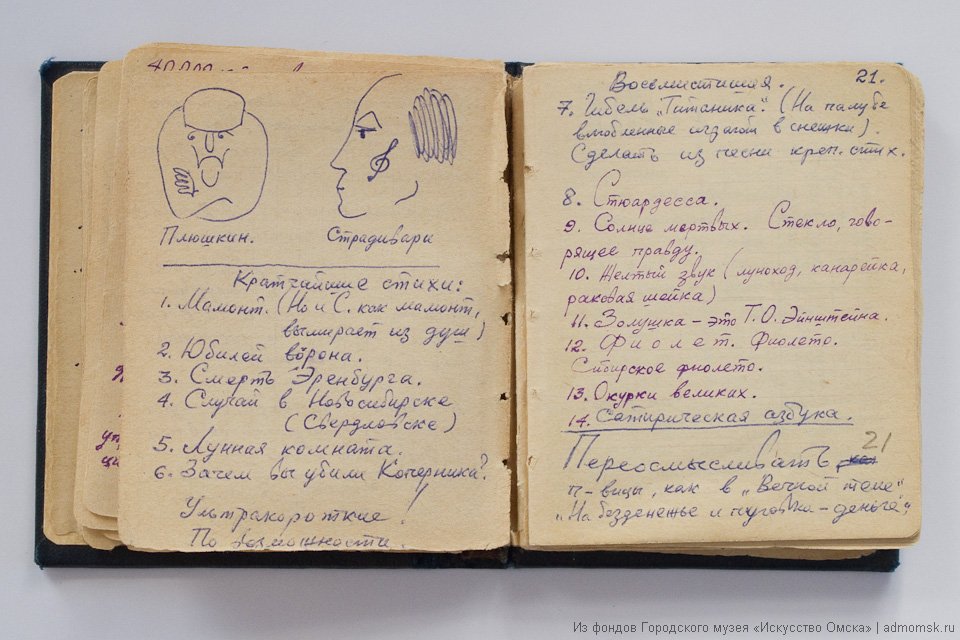 40000
Плюшкин.
Страдивари
Кратчайшие стихи:
1. Мамонт. (Но и С. как мамонт,
вымирает из душ)
2. Юбилей ворона.
3. Смерть Эренбурга.
4. Случай в Новосибирске
(Свердловске)
5. Лунная комната.
6. Зачем вы убили Коперника?
Ультракороткие!
По возможности.
21.
Восьмистишия.
7. Гибель „Титаника“. (На палубе
влюбленные играют в снежки).
Сделать из песни креп. стих.
8. Стюардесса.
9. Солнце мертвых. Стекло, гово-
рящее правду.
10. Желтый звук (луноход, канарейка,
раковая шейка)
11. Золушка – это Т.О. Эйнштейна.
12. Фиолет. Фиолето.
Сибирское фиолето.
13. Окурки великих.
14. Сатирическая азбука.
21
Переосмысливать
п-вицы, как в „Вечной теме“
„На безденежье и пуговка – деньга“,
Из фондов Городского музея «Искусство Омска» | admomsk.ru